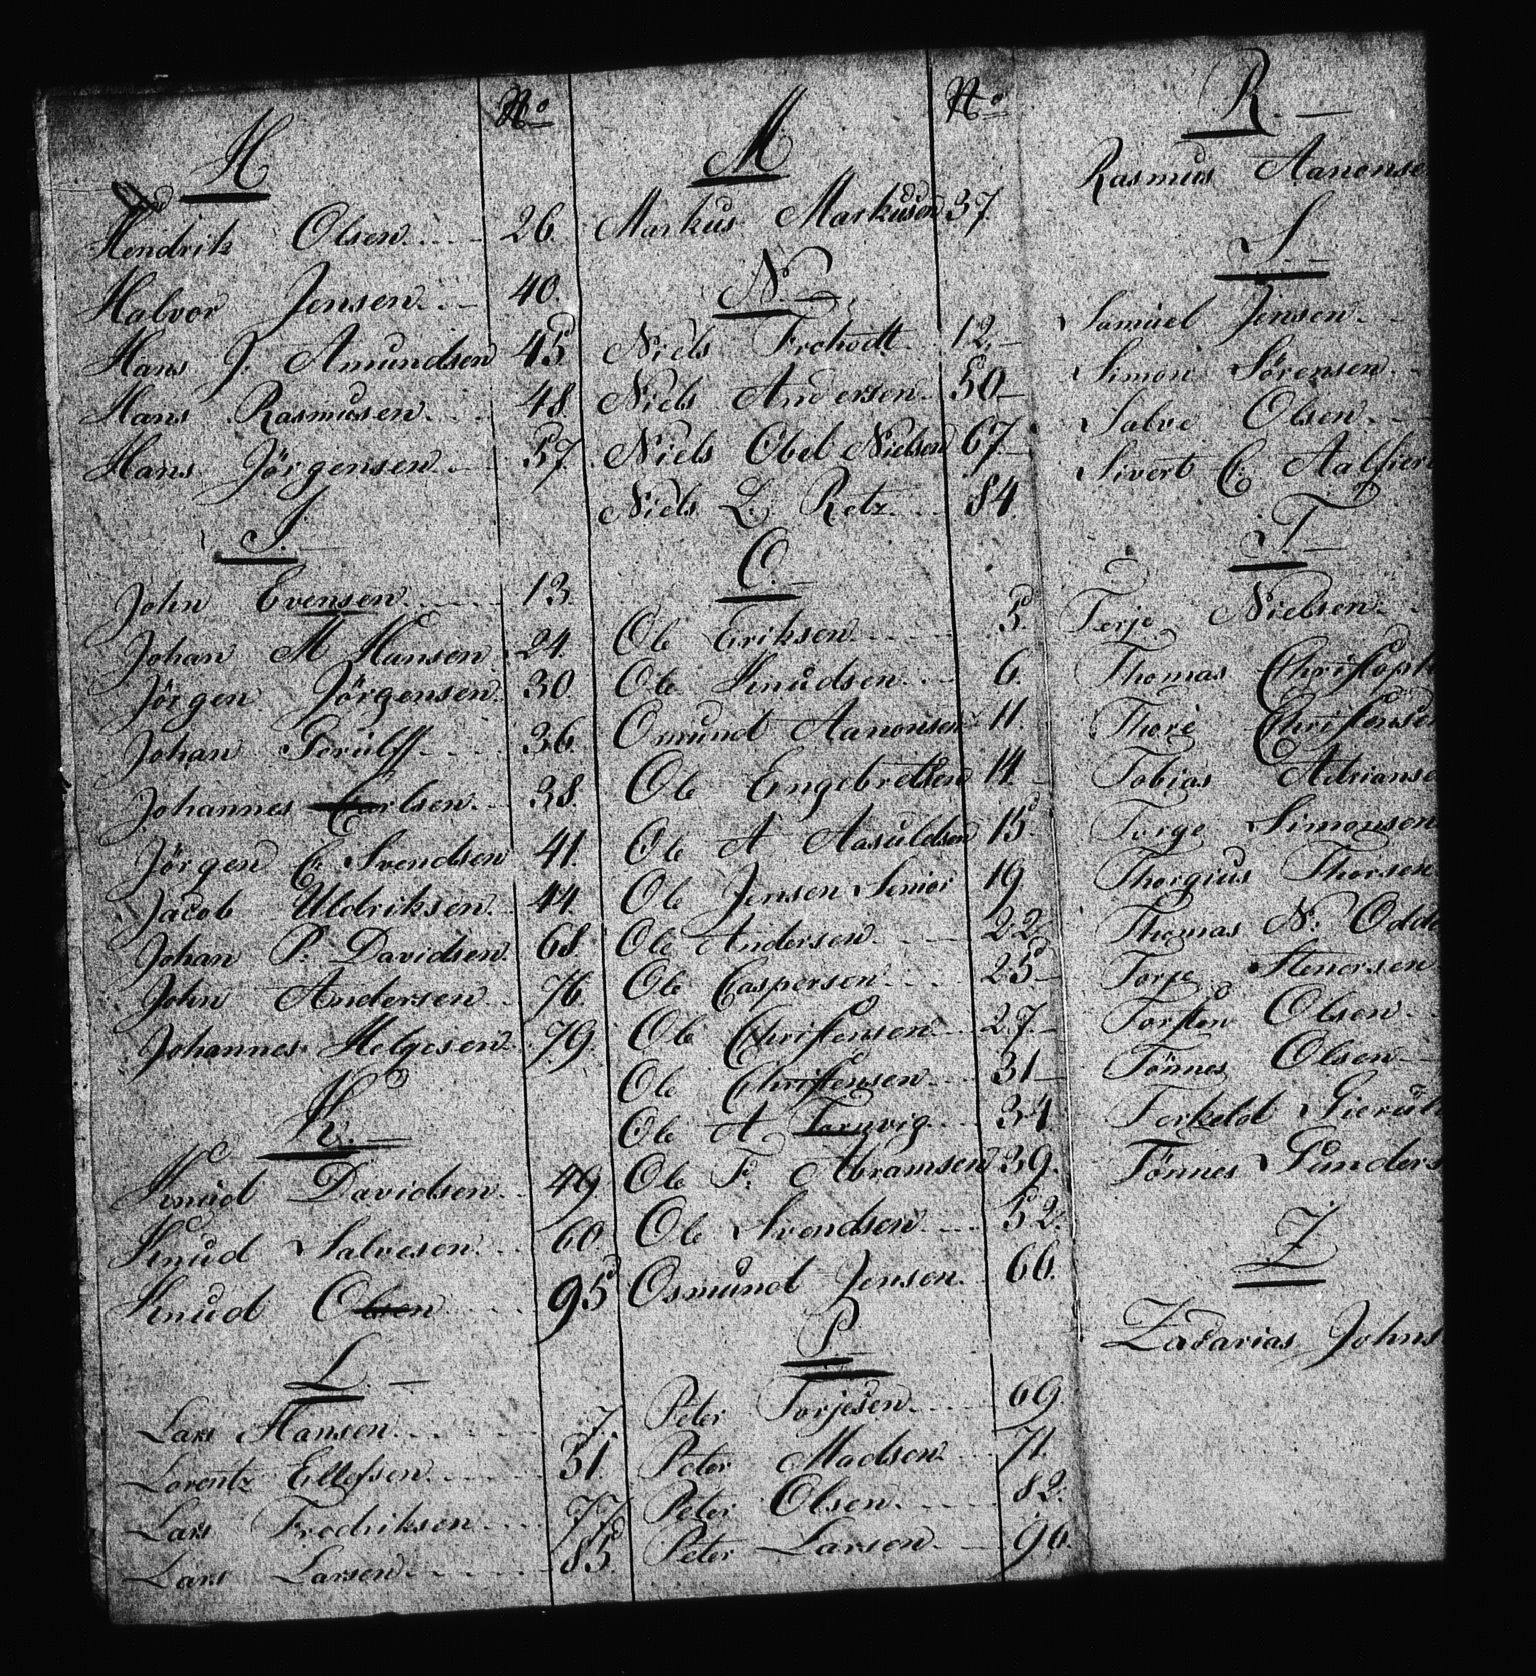 H
No
Hendrik Olsen 26.
Halvor Jensen 40.
Hans J. Amundsen 45
Hans Rasmusen 48
Hans Jörgensen 57.
J.
John Evensen 13.
Johan M Hansen 24.
Jörgen Jörgensen 30
Johan Gerulff 36
Johannes Carlsen 38.
Jörgen C Svendsen 41.
Jacob Uldriksen 44.
Johan P. Davidsen 68.
John Andersen 76.
Johannes Helgesen 79.
K.
Knud Davidsen 49
Knud Salvesen 60.
Knud Olsen 95
L.
Lars Hansen 7.
Lorentz Ellefsen 51.
Lars Fredriksen 77.
Lars Larsen 85.
M
No
Markus Markusen 37.
N.
Niels Frohodt 12.
Niels Andersen 50
Niels Obel Nielsen 67.
Niels L. Retz 84.
O.
Ole Eriksen 5.
Ole Knudsen 6.
Osmund Aanonsen 11.
Ole Engebretsen 14
Ole A Aasuldsen 15
Ole Jensen Senior 19.
Ole Andersen 22
Ole Caspersen 25
Ole Christensen 27.
Ole Christensen 31
Ole A 34.
Ole F. Abramsen 39.
Ole Svendsen 52.
Osmund Jensen 66.
P.
Peter Torjesen 69.
Peter Madsen 71.
Peter Olsen 82.
Peter Larsen 96.
R.
Rasmus Aanonse
S.
Samuel Jensen
Simon Sörensen
Salve Olsen
Sivert C.
T
Terje Nielsen
Thomas Christoph
Thore Christens
Tobias Adrianse
Terge Simonsen
Thorgius Thorsen
Thomas N. Odd
Torje Stenersen
Torsten Olsen
Tönnes Olsen
Torkeld Gierul
Tönnes Gunders
Z
Zacarias Johns